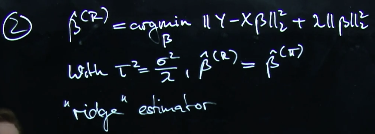 ② β̂^(R) = argmin_β ‖Y-Xβ‖₂² + λ‖β‖₂²
With τ² = σ²/λ, β̂^(R) = β̂^(π)
"ridge" estimator